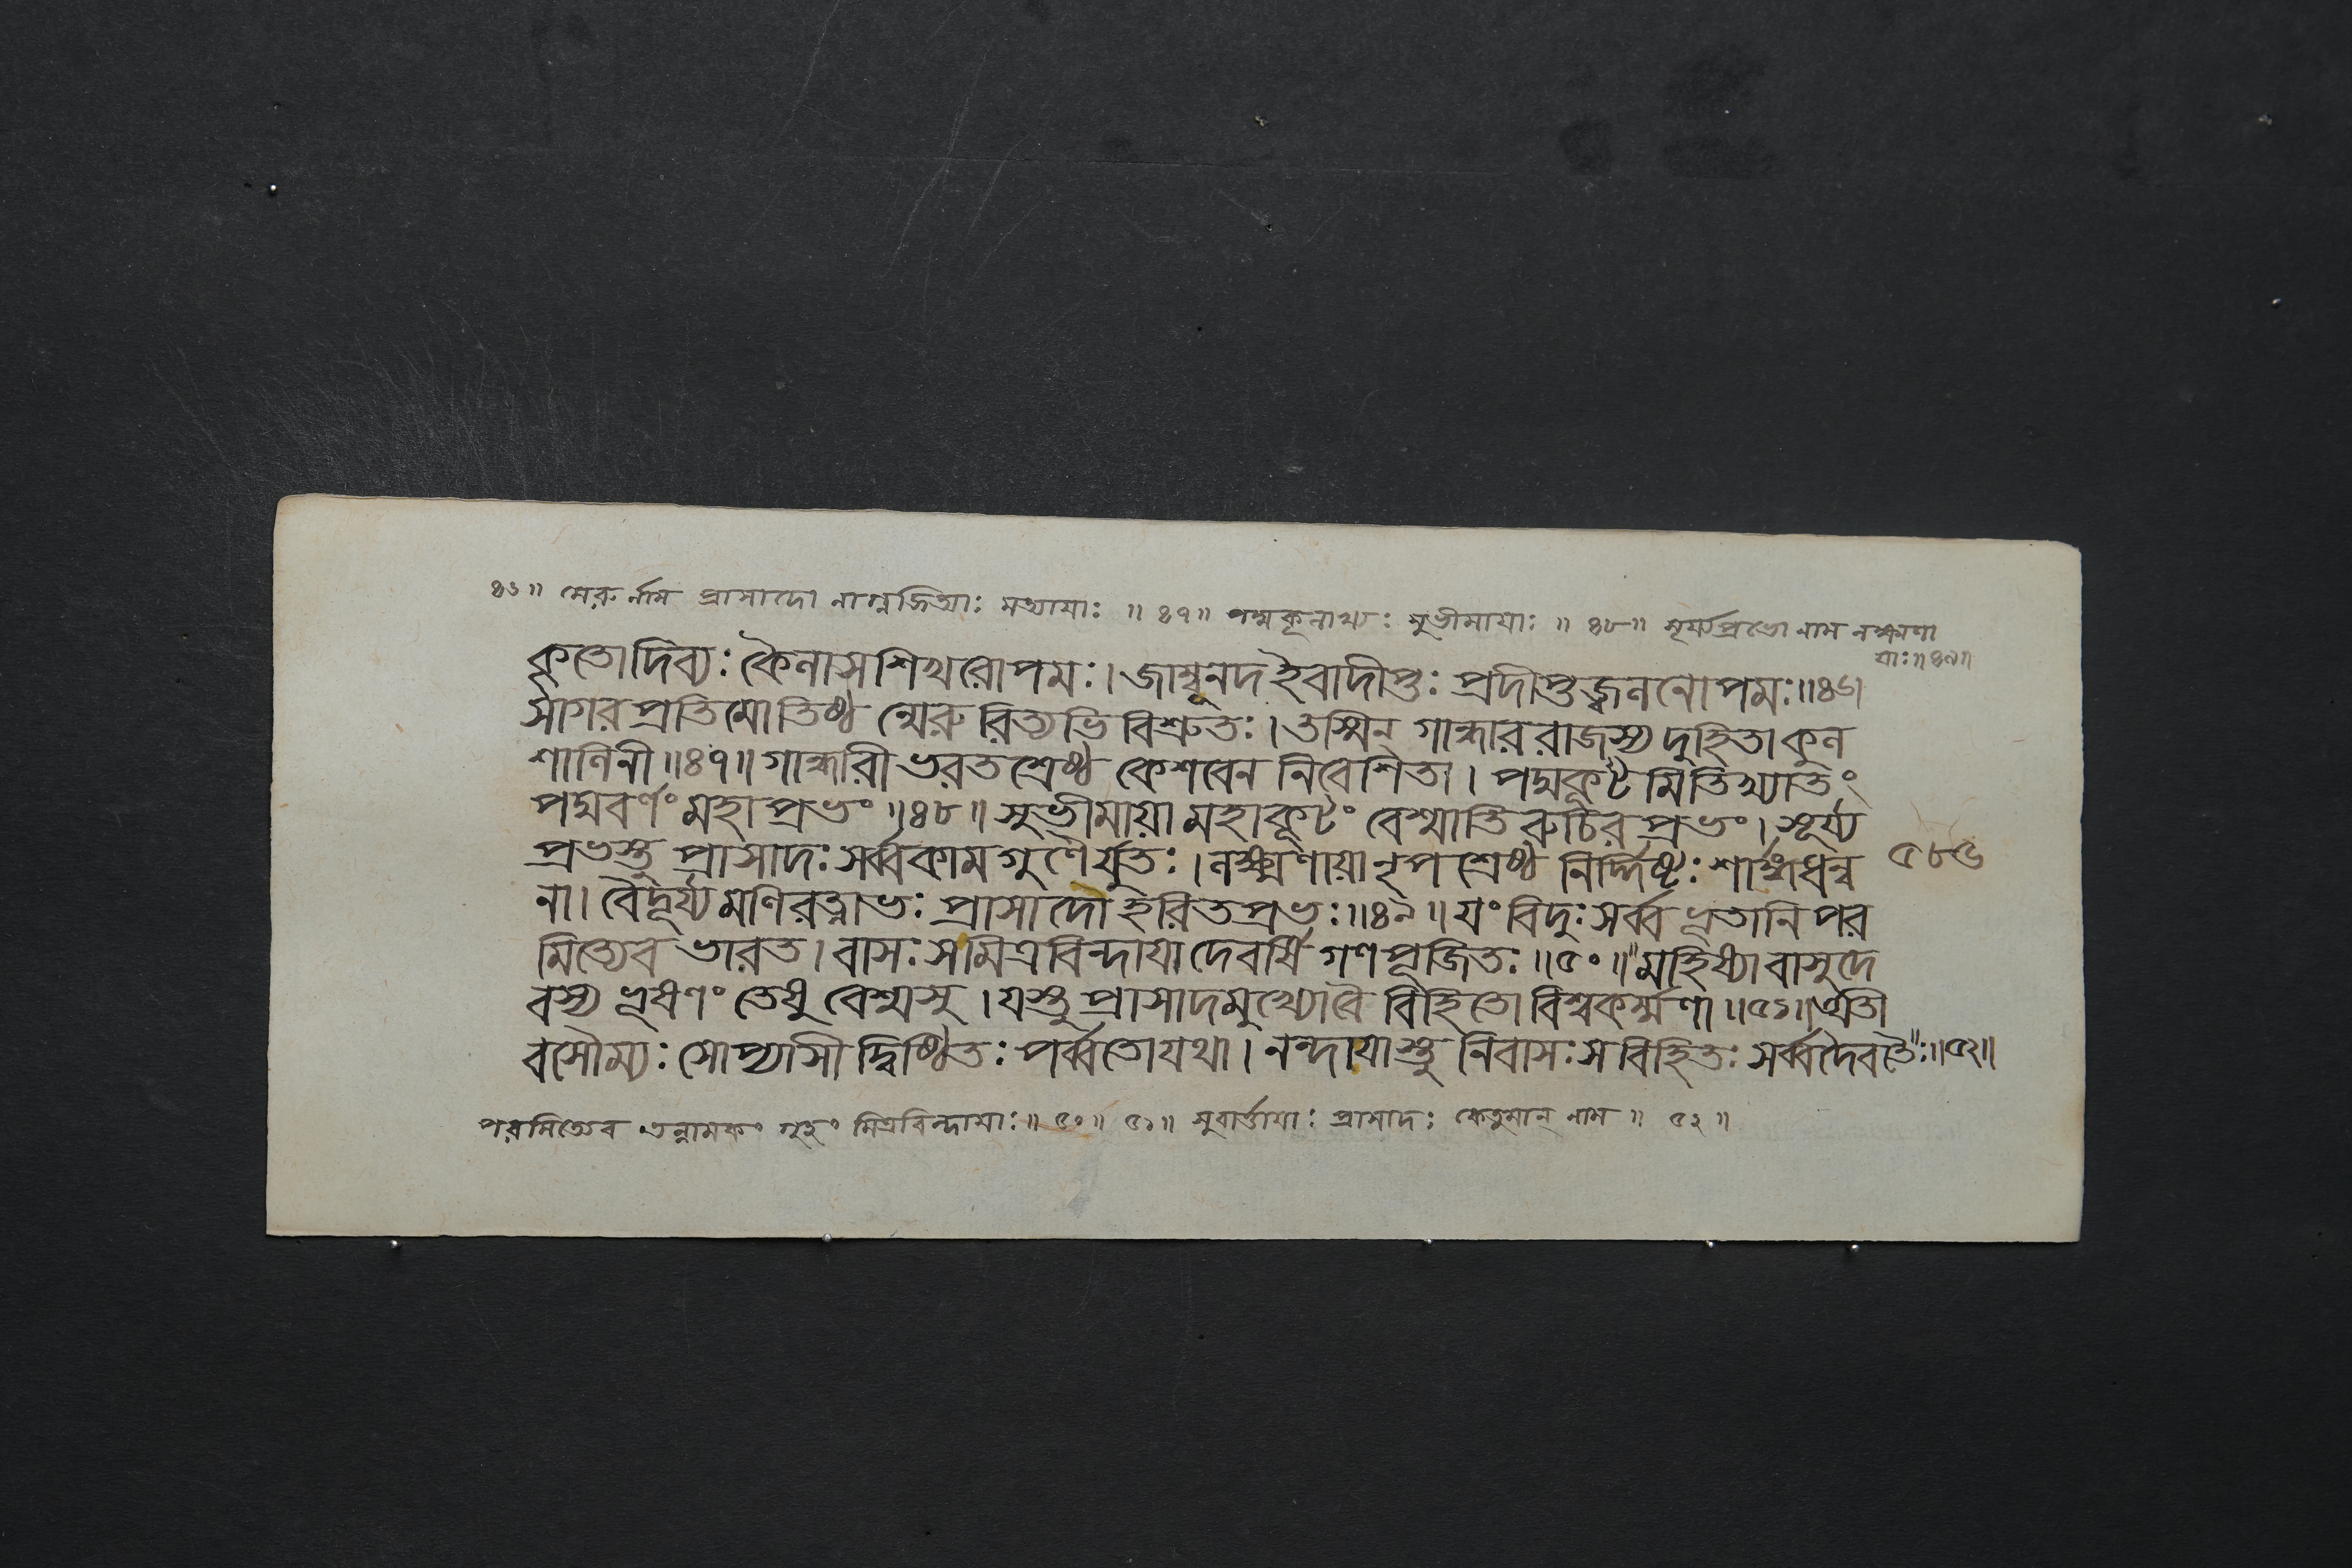 ৪৬॥ মেরুর্নাম প্রাসাদো নাগ্নজিত্যাঃ সত্যায়াঃ ॥ ৪৭॥ পদ্মকূলাখ্যঃ সুভীমায়াঃ ॥ ৪৮॥ সূর্য্যপ্রভো নাম লক্ষ্মণা
য়াঃ॥৪৯॥
কৃতোদিব্যঃ কৈলাসশিখরোপমঃ।জাম্বূনদইবাদীপ্তঃ প্রদীপ্তজ্বলনোপমঃ॥৪৬।
সাগরপ্রতিমোতিষ্ঠন্মেরুরিত্যভিবিশ্রুতঃ।তস্মিন্ গান্ধাররাজস্য দুহিতাকুল
শালিনী॥৪৭॥গান্ধারী ভরতশ্রেষ্ঠ কেশবেন নিবেশিতা। পদ্মকূটমিতিখ্যাতং
পদ্মবর্ণং মহাপ্রভং॥৪৮॥ সুভীমায়ামহাকূটং বেশ্মাতিরুচিরপ্রভং।সূর্য্য
প্রভস্তু প্রাসাদঃ সর্ব্বকামগুণৈর্যুতঃ।লক্ষ্মণায়ানৃপশ্রেষ্ঠ নির্দ্দিষ্টঃ শার্ঙ্গধন্ব ৫৮৬
না। বৈদূর্য্যমণিরত্নাভঃ প্রাসাদোহরিতপ্রভঃ॥৪৯॥যং বিদুঃ সর্ব্বভূতানি পর
মিত্যেব ভারত।বাসঃ সমিত্রবিন্দায়াদেবর্ষিগণপূজিতঃ॥৫০॥মহিষ্যাবাসুদে
বস্য ভূষণং তেষু বেশ্মসু।যস্তু প্রাসাদমুখ্যোবৈ বিহিতোবিশ্বকর্ম্মণা॥৫১॥অতী
বসৌম্যঃ সোপ্যাসীদ্বিষ্ঠিতঃ পর্ব্বতোযথা। নন্দায়াস্তু নিবাসঃ সবিহিতঃ সর্ব্বদৈবতৈঃ॥৫২॥
পরমিত্যেব তন্নামকং গৃহং মিত্রবিন্দায়াঃ॥ ৫০॥ ৫১॥ সুবার্ত্তায়াঃ প্রাসাদঃ কেতুমান্ নাম॥ ৫২॥